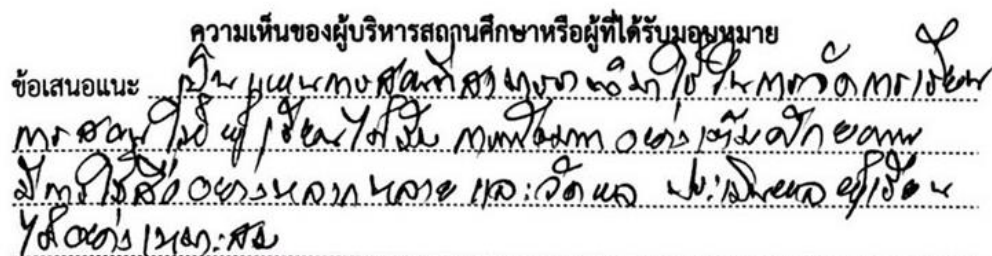 ความเห็นของผู้บริหารสถานศึกษาหรือผู้ที่ได้รับมอบหมาย
ข้อเสนอแนะ เป็นแผนการสอนที่สามารถนำมาใช้ในการจัดการเรียน
การสอนให้ผู้เรียนได้รับการพัฒนาอย่างเต็มศักยภาพ
มีการใช้สื่ออย่างหลากหลาย และวัดผล ประเมินผลผู้เรียน
ได้อย่างเหมาะสม